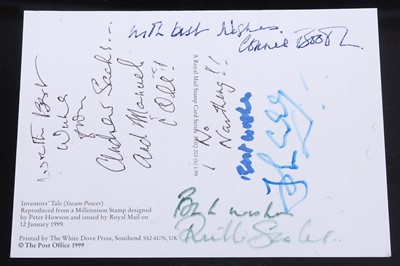 With Best Wishes.
Connie Booth
With Best
Wishes
from
Andrew Sachs...
And Manuel
(Olé!)
¡No
Nartheng!!
A Royal Mail Stamp Card Series
Best Wishes
Best wishes
Prunella Scales
Inventors' Tale (Steam Power)
Reproduced from a Millennium Stamp designed
by Peter Howson and issued by Royal Mail on
12 January 1999.
Printed by The White Dove Press, Southend SS2 6UN, UK
© The Post Office 1999